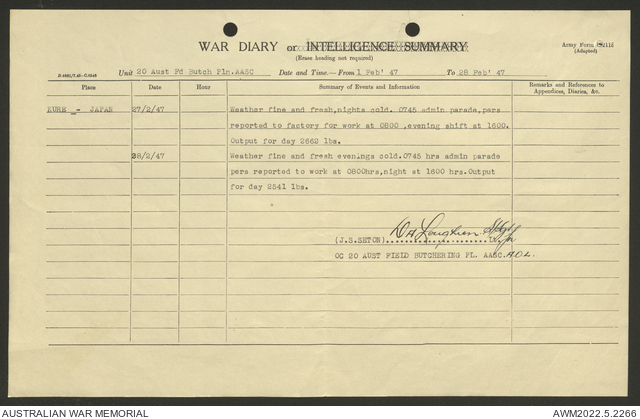 WAR DIARY or INTELLIGENCE SUMMARY
(Erase heading not required)
Army Form
(Adapted)
Unit 20 Aust Fd Butch Pln.AASC Date and Time—From 1 Feb' 47 To 28 Feb' 47
Place Date Hour Summary of Events and Information Remarks and References to Appendices, Diaries, &c.
KURE - JAPAN 27/2/47 Weather fine and fresh,nights cold. 0745 admin parade,pers
reported to factory for work at 0800 ,evening shift at 1600.
Output for day 2662 lbs.
28/2/47 Weather fine and fresh evenings cold.0745 hrs admin parade
pers reported to work at 0800hrs,night at 1600 hrs.Output
for day 2541 lbs.
(J.S.SETON)
OC 20 AUST FIELD BUTCHERING PL. AASC.
AUSTRALIAN WAR MEMORIAL AWM2022.5.2266